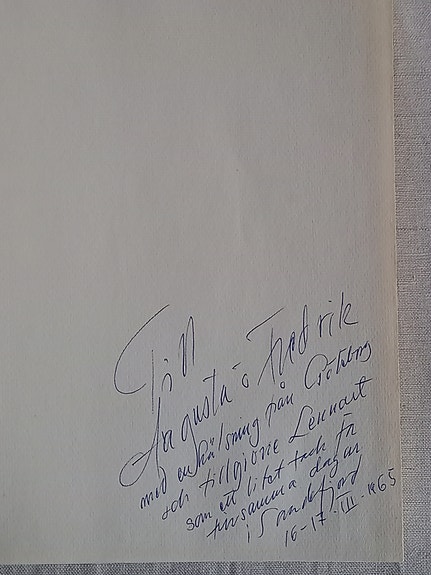 Till
Augusta o Fredrik
med en hälsning från Göteborg
och tillgivne Lennart
som ett litet tack för
dagar
i Sandefjord
16-17-III-1965